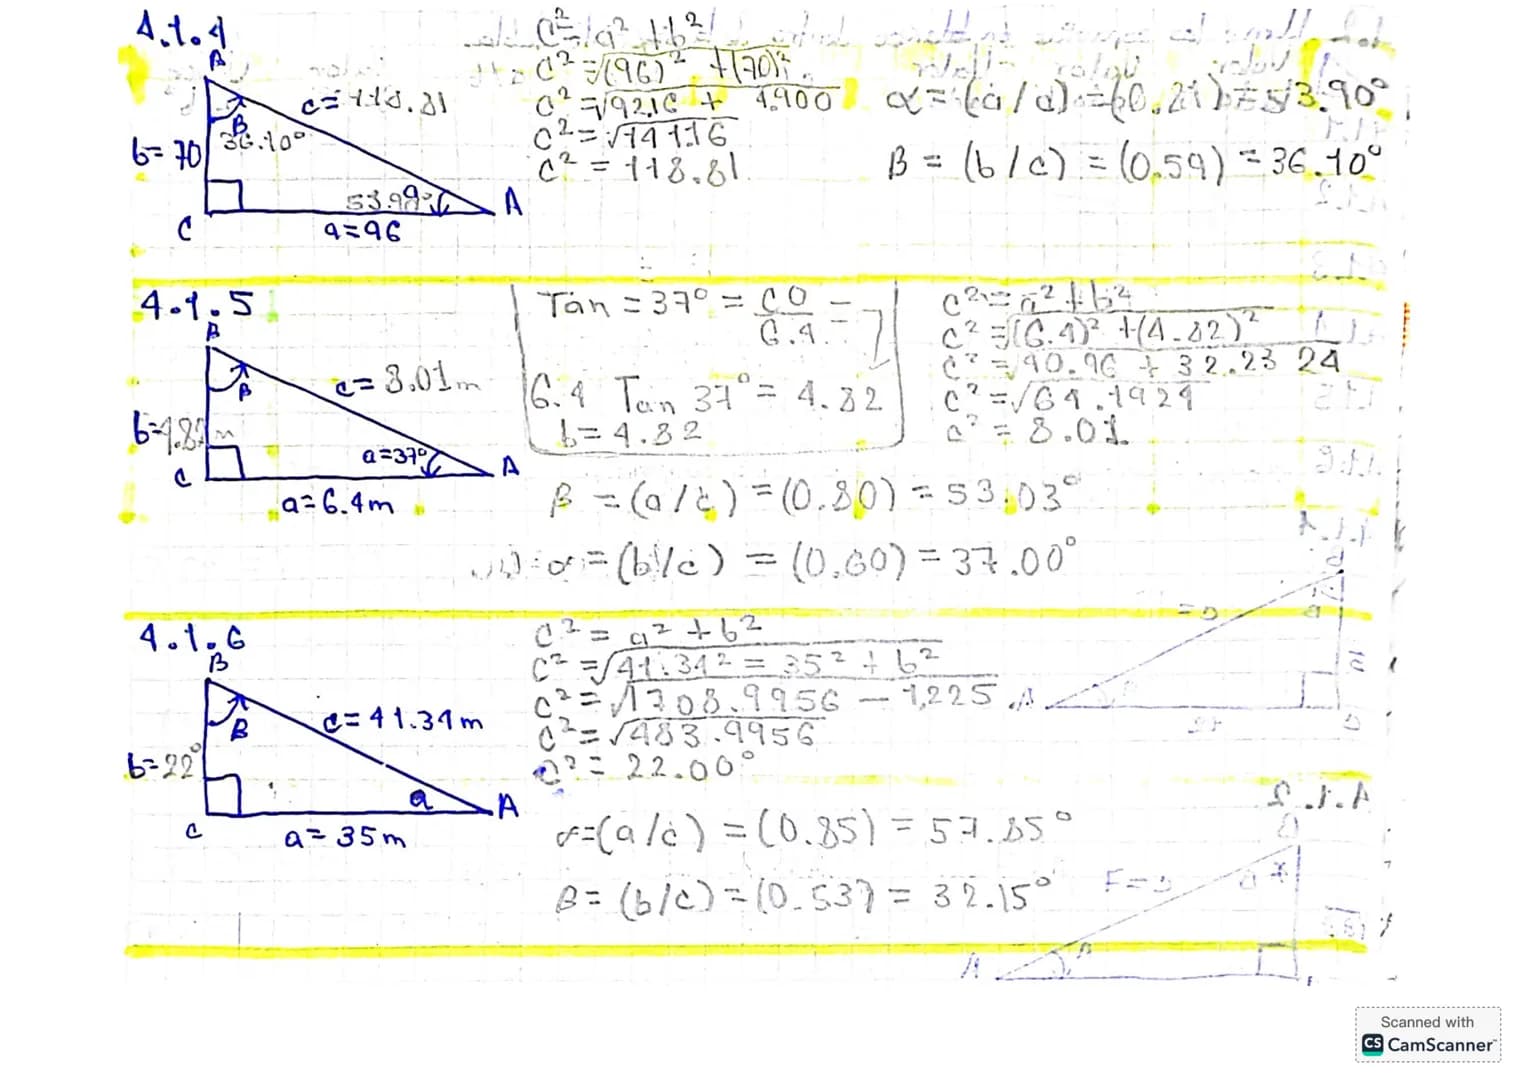 4.1.4
B
c=118.81
B
36.10°
b=70
53.90°
A
C
a=96
c²=a²+b²
c²=√(96)²+(70)²
c²=√9216 + 4.900
c²=√14116
c²=118.81
α=(a/c)=(0.81)=53.90°
β=(b/c)=(0.59)=36.10°
4.1.5
B
B
c=8.01m
b=4.82m
a=37°
A
C
a=6.4m
Tan=37°=CO/6.4=
6.4 Tan 37°=4.82
b=4.82
c²=a²+b²
c²=√(6.4)²+(4.82)²
c²=√40.96+32.23 24
c²=√64.1924
c²=8.01
β=(a/c)=(0.80)=53.03°
α=(b/c)=(0.60)=37.00°
4.1.6
B
B
c=41.34m
b=22°
a
A
C
a=35m
c²=a²+b²
c²=√41.34²=35²+b²
c²=√1708.9956-1,225
c²=√483.9956
c²=22.00°
α=(a/c)=(0.85)=57.85°
β=(b/c)=(0.537=32.15°
Scanned with
CS CamScanner